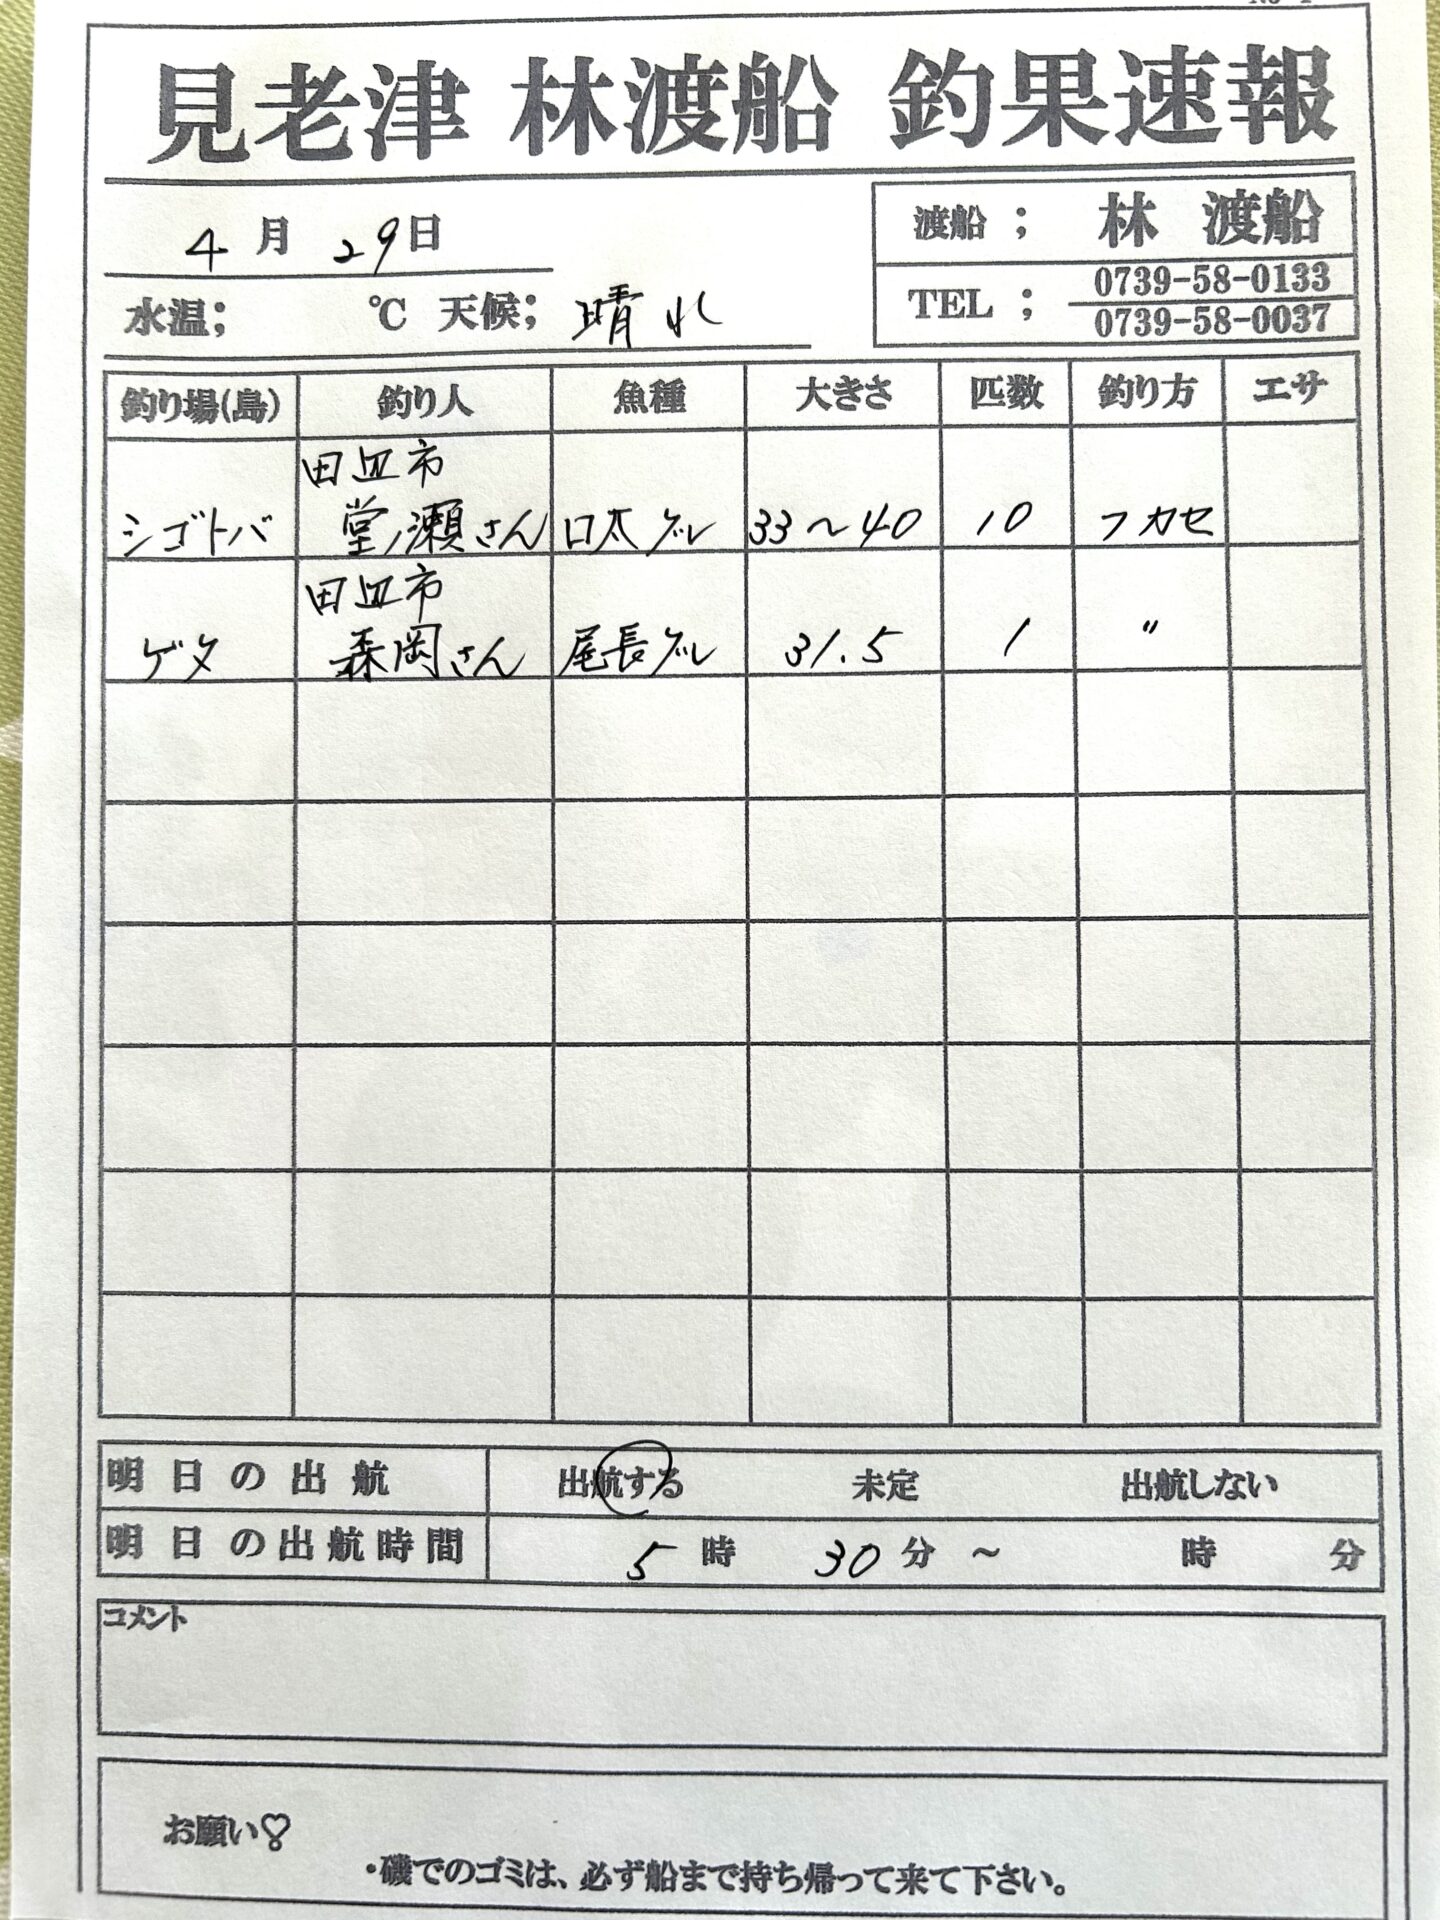 見老津 林渡船 釣果速報
4月29日
渡船； 林 渡船
水温； ℃ 天候；晴れ
TEL； 0739-58-0133
0739-58-0037
釣り場(島) 釣り人 魚種 大きさ 匹数 釣り方 エサ
田辺市
シゴトバ 堂ノ瀬さん 口太グレ 33～40 10 フカセ
田辺市
ゲタ 森岡さん 尾長グレ 31.5 1 〃
明日の出航 出航する 未定 出航しない
明日の出航時間 5時30分～ 時 分
コメント
お願い♡
・磯でのゴミは、必ず船まで持ち帰って来て下さい。